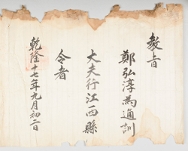 教旨
鄭弘淳為通訓
大夫行江西縣
令者
乾隆十七年九月初二日